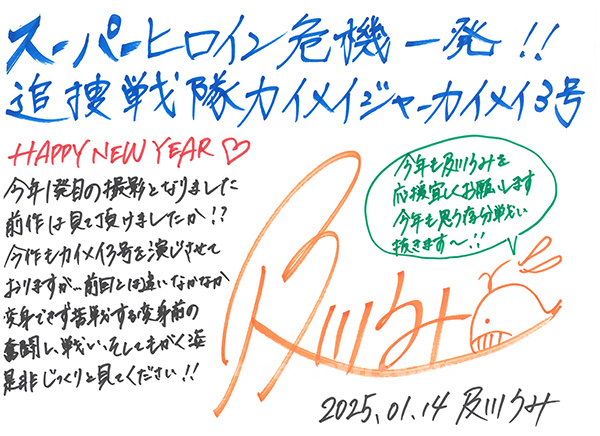 スーパーヒロイン危機一発！！
追捜戦隊カイメイジャーカイメイ3号
HAPPY NEW YEAR♡
今年1発目の撮影となりました
前作は見て頂けましたか！？
今作もカイメイ3号を演じさせて
おりますが…前回とは違いなかなか
変身できず苦戦する変身前の
奮闘し、戦い、そしてもがく姿
是非じっくりと見てください！！
今年も及川うみを
応援宜しくお願いします
今年も思う存分戦い
抜きます〜！！
及川うみ
2025.01.14 及川うみ